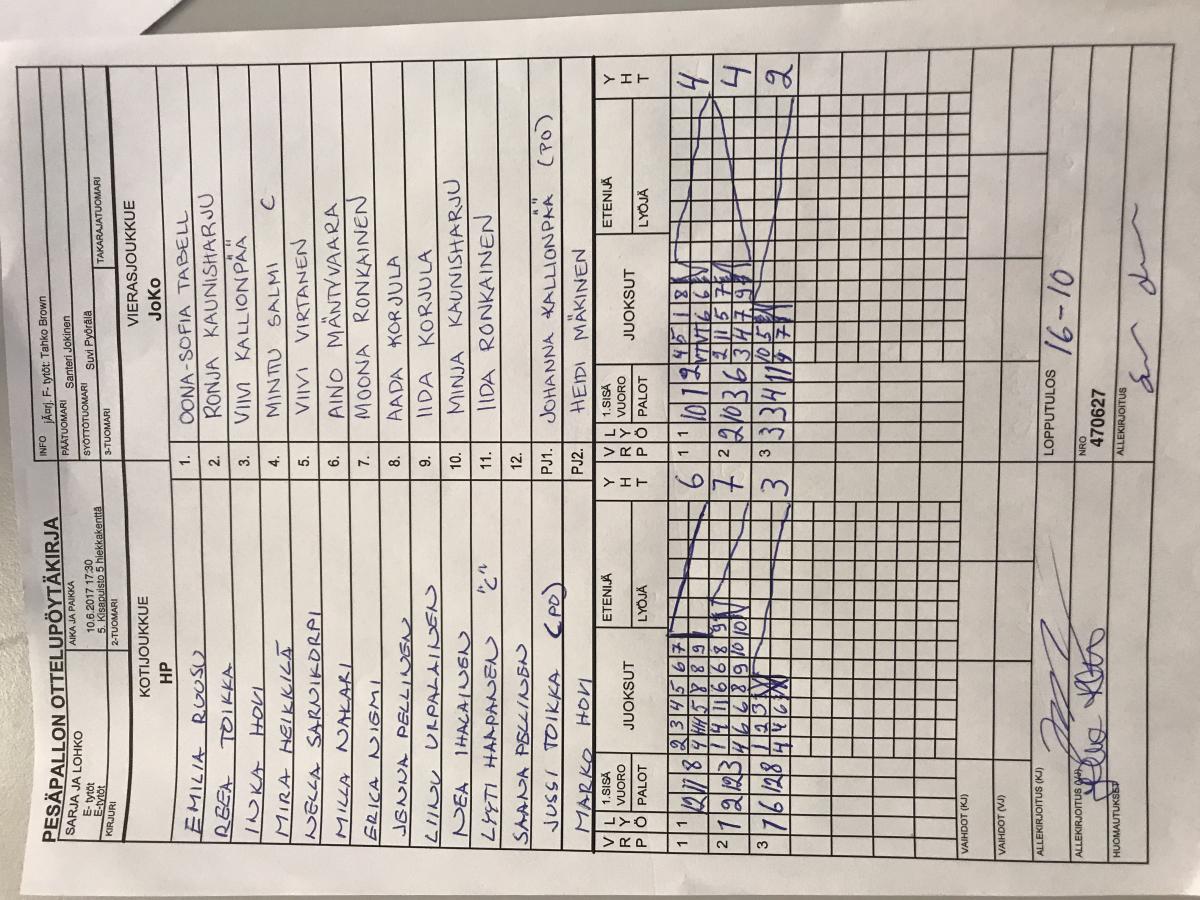 PESÄPALLON OTTELUPÖYTÄKIRJA
INFO jÄ¤rj. F- tytöt: Tahko Brown
SARJA JA LOHKO
E- tytöt
E-tytöt
AIKA JA PAIKKA
10.6.2017 17:30
5. Kisapuisto 5 hiekkakenttä
PÄÄTUOMARI Santeri Jokinen
SYÖTTÖTUOMARI Suvi Pyörälä
KIRJURI
2-TUOMARI
3-TUOMARI
TAKARAJATUOMARI
KOTIJOUKKUE
HP
VIERASJOUKKUE
JoKo
EMILIA RUOSU 1. OONA-SOFIA TABELL
REEA TOIKKA 2. RONJA KAUNISHARJU
INKA HOVI 3. VIIVI KALLIONPÄÄ
MIRA HEIKKILÄ 4. MINTTU SALMI C
NELLA SARVIKORPI 5. VIIVI VIRTANEN
MILLA NAKARI 6. AINO MÄNTYVAARA
ERICA NIEMI 7. MOONA RONKAINEN
JENNA PELLINEN 8. AADA KORJULA
LIINU URPALAINEN 9. IIDA KORJULA
NEA IHALAINEN 10. MINJA KAUNISHARJU
LYYTI HAAPANEN "C" 11. IIDA RONKAINEN
SAANA PELLINEN 12.
JUSSI TOIKKA (PO) PJ1. JOHANNA KALLIONPÄÄ (PO)
MARKO HOVI PJ2. HEIDI MÄKINEN
V R P L Y Ö 1.SISÄ VUORO PALOT JUOKSUT ETENIJÄ LYÖJÄ Y H T V R P L Y Ö 1.SISÄ VUORO PALOT JUOKSUT ETENIJÄ LYÖJÄ Y H T
1 1 12 11 8 2 3 4 5 6 7 6 1 1 10 1 2 4 5 1 8 4
4 5 8 8 9
2 1 2 12 3 1 4 11 6 6 8 9 7 2 2 10 3 6 2 11 5 7 4
4 6 6 8 9 10 10 3 4 7 9
3 7 6 12 8 1 2 3 3 3 3 3 4 11 10 5 2
4 4 6 9 7
VAIHDOT (KJ)
VAIHDOT (VJ)
ALLEKIRJOITUS (KJ)
LOPPUTULOS 16-10
ALLEKIRJOITUS (VJ)
NRO
470627
HUOMAUTUKSET
ALLEKIRJOITUS